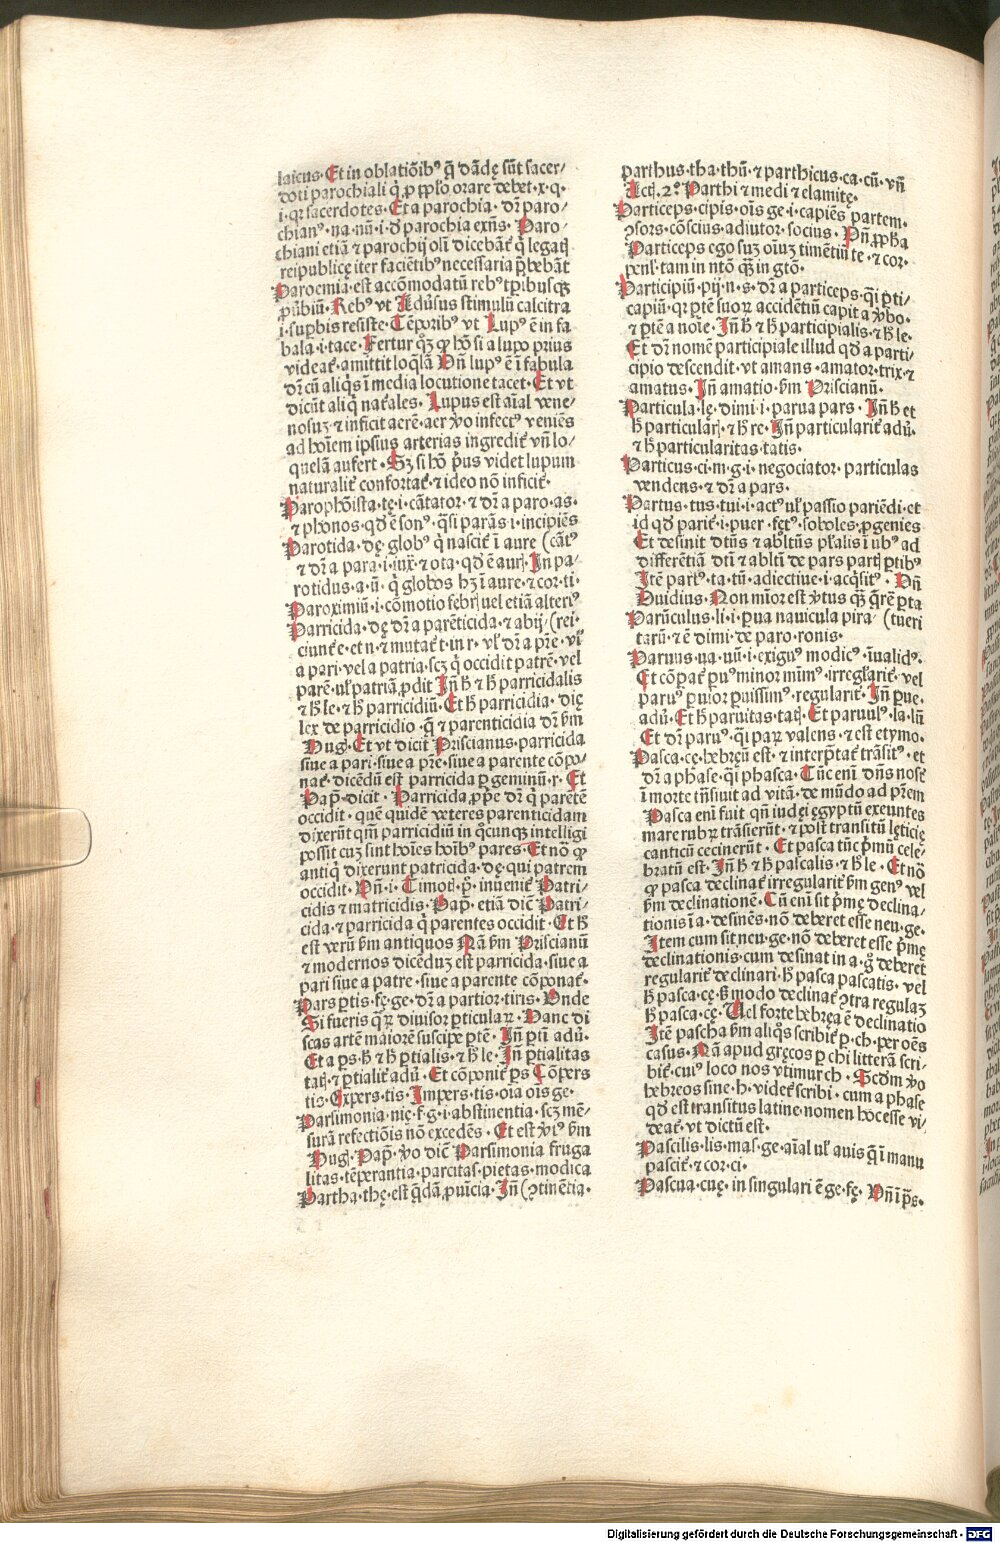 laicus. Et in oblatiōibꝰ q̄ dādę sūt sacer/
doti parochiali q̇ ꝓ ppl̓o orare debet. x. q.
i. qꝛ sacerdotes. Et a parochia. dr̄ paro/
chianꝰ. na. nū. i. d̓ parochia exn̄s. Paro/
chiani etiā ⁊ parochij olī dicebāt̄ q̇ legatꝭ
reipublicę iter faciētibꝰ necessaria p̄bebāt
Paroemia. est accōmodatū rebꝰ tꝑibusqꝫ
ꝓūbiū. Rebꝰ vt Adūsus stimulū calcitra
i. suꝑbis resiste. Tēporibꝰ vt Lupꝰ ē in fa
bala. i. tace. Fertur qꝫ ꝙ hō si a lupo prius
videat̄. amittit loq̄lā Vn̄ lupꝰ ē ī fabula
dr̄ cū aliq̇s ī media locutione tacet. Et vt
dicūt aliq̇ nat̄ales. Lupus est aīal vene/
nosuꝫ ⁊ inficit aerē. aer v̓o infectꝰ veniēs
ad hoīem ipsius arterias ingredit̄ vn̄ lo/
quelā aufert. Sꝫ si hō p̓us videt lupum
naturalit̄ confortat̄. ⁊ ideo nō inficit̄.
Parophōista. tę. i. cātator. ⁊ dr̄ a paro. as.
⁊ phonos. qd̓ ē sonꝰ. q̄si parās. i. incipiēs
Parotida. dę. globꝰ q̇ nascit̄ ī aure (cātꝰ
⁊ dr̄ a para. i. iux̄ ⁊ ota. qd̓ ē aurꝭ. In pa/
rotidus. a. ū. q̇ globos hꝫ ī aure. ⁊ cor. ti.
Paroximiū. i. cōmotio febrꝭ uel etiā alteriꝰ
Parricida. dę dr̄ a parēticida. ⁊ abijꝭ (rei.
ciunt̄ e. et n. ⁊ mutat̄ t. in r. vl̓ dr̄ a pr̄e. vl̓
a pari. vel a patria. scꝫ q̇ occidit patrē. vel
parē. ul̓ patriā ꝓdit In̄ h̓ ⁊ h̓ parricidalis
⁊ h̓ le. ⁊ h̓ parricidiū. Et h̓ parricidia. dię
lex de parricidio. q̄ ⁊ parenticidia dr̄ ẜm
Hug. Et vt dicit Priscianus. parricida
siue a pari. siue a pr̄e. siue a parente cōpo/
nat̄. dicēdū est parricida ꝑ geminū. r. Et
Pap̄. dicit. Parricida ꝓp̓e dr̄ q̇ parētē
occidit. quē quidē veteres parenticidam
dixerūt qm̄ parricidiū in q̇cunqꝫ intelligi
possit cuꝫ sint hoīes hoībꝰ pares. Et nō ꝙ
antiq̇ dixerunt patricida. dę. qui patrem
occidit. Vn̄. i. Timoth̓. p̄. inuenit̄ Patri/
cidis ⁊ matricidis. Pap̄. etiā dic̄ Patri/
cida. ⁊ parricida q̇ parentes occidit. Et h̓
est verū ẜm antiquos Nā ẜm Priscianū
⁊ modernos dicēduꝫ est parricida. siue a
pari siue a patre. siue a parente cōponat̄.
Pars ꝑtis. fę. ge. dr̄ a partior. tiris. Vnde
Si fueris q̇ꝛ diuisor ꝑticulaꝝ. Hanc di
scas artē maiorē suscipe ꝑtē. In̄ ꝑtī adū.
Et a ꝑs. h̓ ⁊ h̓ ꝑtialis. ⁊ h̓ le. In̄ ꝑtialitas
tatꝭ. ⁊ ꝑtialit̄ adū. Et cōponit̄ ꝑs Cōpers
tis. Expers. tis. Impers. tis. oīa oīs ge.
Parsimonia. nię. f. g. i. abstinentia. scꝫ mē/
surā refectiōis nō excedēs. Et est v̓iꝰ ẜm
Hug. Pap̄. v̓o dic̄ Parsimonia fruga
litas. tēperantia. parcitas. pietas. modica
Partha. thę. est q̄dā ꝓuīcia. In̄ (ꝯtinētia.
parthus. tha. thū. ⁊ parthicus. ca. cū. vn̄
Act̄. 2°. Parthi ⁊ medi ⁊ elamitę.
Particeps. cipis. oīs ge. i. capiēs partem.
ꝯsors. cōscius. adiutor. socius. Vn̄ ꝓpha
Particeps ego suꝫ oīuꝫ timētiū te. ⁊ cor.
pēul. tam in ntō qꝫ in gtō.
Participiū. pij. n. s. dr̄ a particeps. q̄i ꝑti-
capiū. qꝛ ꝑtē suoꝝ accidētiū capit a v̓bo.
⁊ ꝑtē a noīe. In̄ h̓ ⁊ h̓ participialis. ⁊ h̓ le.
Et dr̄ nomē participiale illud qd̓ a parti/
cipio descendit. vt amans. amator. trix. ⁊
amatus. In̄ amatio. ẜm Prisciānū.
Particula. lę. dimi. i. parua pars. In̄ h̓ et
h̓ particularꝭ. ⁊ h̓ re. In̄ particularit̄ adū.
⁊ h̓ particularitas. tatis.
Particus. ci. m. g. i. negociator. particulas
vendens. ⁊ dr̄ a pars.
Partus. tus. tui. i. actꝰ ul̓ passio pariēdi. et
id qd̓ parit̄. i. puer. fętꝰ. soboles. ꝓgenies
Et desinit dtūs ⁊ abltūs pl̓alis ī ubꝰ ad
differētiā dtī ⁊ abltī de pars partꝭ ꝑtibꝰ
Itē partꝰ. ta. tū. adiectiue. i. acq̇sitꝰ. Vn̄
Ouidius. Non mīor est v̓tus qꝫ q̄rē ꝑta
Parūculus. li. i. ꝑua nauicula pira/ (tueri
tarū. ⁊ ē dimi. de paro. ronis.
Paruus. ua. uū. i. exiguꝰ modicꝰ. īualidꝰ.
Et cōpat̄ ꝑuꝰ minor mīmꝰ. irregl̓arit̄. vel
paruꝰ ꝑuior ꝑuissimꝰ. regularit̄. In̄ ꝑue.
adū. Et h̓ paruitas. tatꝭ. Et paruulꝰ. la. lū
Et dr̄ paruꝰ. q̄i paꝝ valens. ⁊ est etymo.
Pasca. cę. hebręū est. ⁊ interp̄tat̄ trāsitꝰ. et
dr̄ a phase. q̄i phasca. Tūc enī dn̄s nost̄
ī morte trn̄siuit ad vitā. de mūdo ad pr̄em
Pasca enī fuit qn̄ iudęi ęgyptū exeuntes
mare rubꝝ trāsierūt. ⁊ post transitū lęticię
canticū cecinerūt. Et pasca tūc p̄mū cele-
bratū est. In̄ h̓ ⁊ h̓ pascalis. ⁊ h̓ le. Et nō
ꝙ pasca declinat̄ irregularit̄ ẜm genꝰ vel
ẜm declinationē. Cū enī sit p̄mę declina/
tionis ī a. desinēs. nō deberet esse neu. ge.
Item cum sit neu. ge. nō deberet esse p̄mę
declinationis. cum desinat in a. g̊ deberet
regularit̄ declinari. h̓ pasca pascatis. vel
h̓ pasca. cę. ẞ modo declinat̄ ꝯtra regulaꝫ
h̓ pasca. cę. Uel forte hebręa ē declinatio
Itē pascha ẜm aliq̇s scribit̄ ꝑ. ch. per oēs
casus. Nā apud gręcos ꝑ chi litterā scri/
bit̄. cuiꝰ loco nos vtimur ch. Scd̓m v̓o
hebreos sine. h. videt̄ scribi. cum a phase
qd̓ est transitus latine. nomen hoc esse vi/
deat̄. vt dictū est.
Pascilis. lis. mas. ge. aīal ul̓ auis q̄ ī manu
pascit̄. ⁊ cor. ci.
Pascua. cuę. in singulari ē ge. fę. Vn̄ ī ps̄.
Digitalisierung gefördert durch die Deutsche Forschungsgemeinschaft - DFG